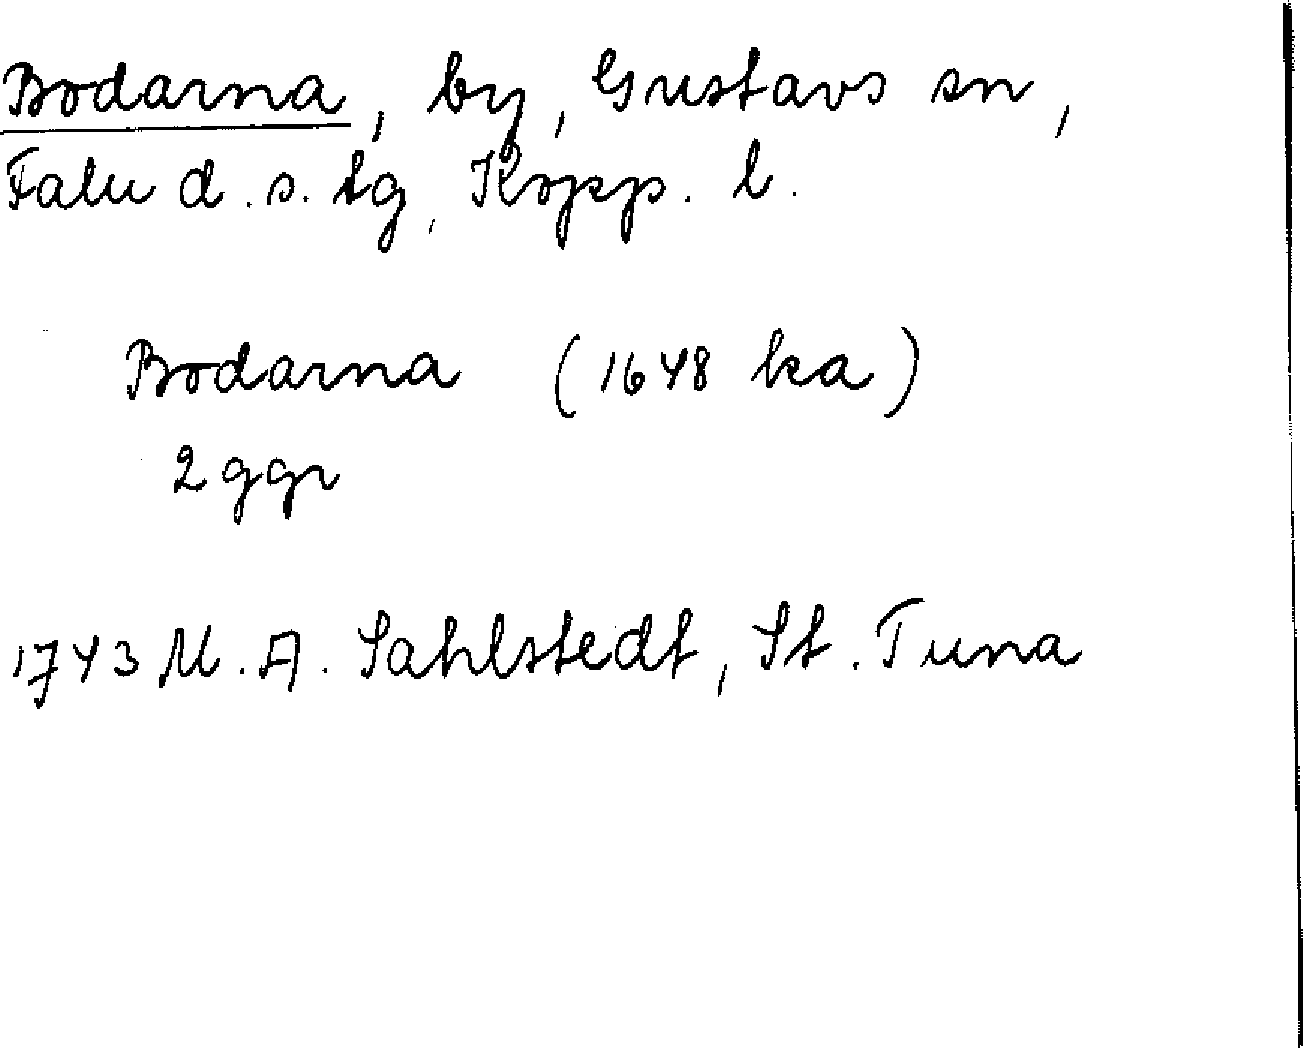 Bodarna, by, Gustavs sn,
Falu d.s. tg, Kopp. l.
Bodarna (1648 ka)
2 ggr
1743 M. A. Sahlstedt, St. Tuna